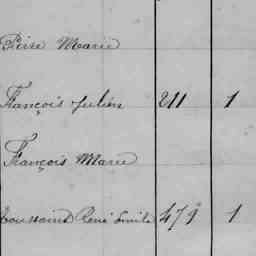 Pierre Marie
François Julien 211 1
François Marie
Toussaint René Emile 479 1